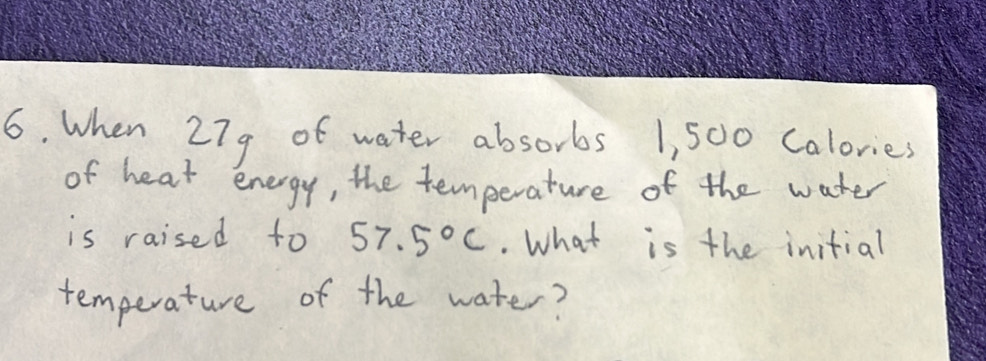 6. When 27g of water absorbs 1,500 Calories
of heat energy, the temperature of the water
is raised to 57.5°C. What is the initial
temperature of the water?